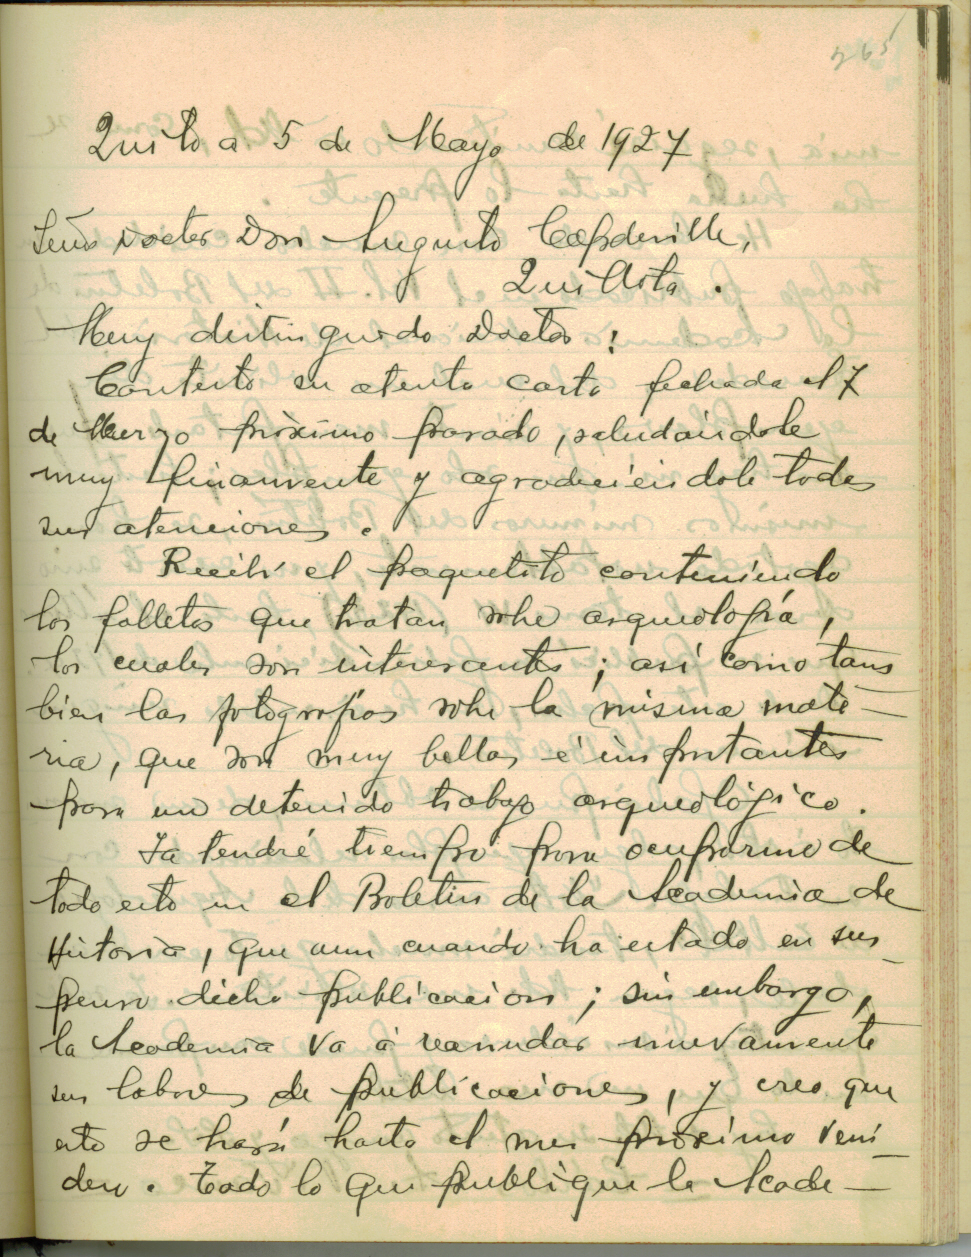 265
Quito a 5 de Mayo de 1927
Señor Doctor Don Augusto Capdeville,
Quillota.
Muy distinguido Doctor:
Contesto su atenta carta fechada el 7
de Marzo próximo pasado, saludándole
muy finamente y agradeciéndole todas
sus atenciones.
Recibí el paquetito conteniendo
los folletos que tratan sobre arqueología,
los cuales son interesantes; así como tam
bien las fotografías sobe la misma mate-
ria, que son muy bellas é importantes
para un detenido trabajo arqueológico.
Ya tendré tiempo para ocuparme de
todo esto en el Boletin de la Academia de
Historia, que aun cuando ha estado en sus-
penso dicha publicacion; sin embargo,
la Academia va á reanudar nuevamente
sus labores de publicaciones, y creo que
esto se hará hasta el mes próximo veni-
dero. Todo lo que publique la Acade-